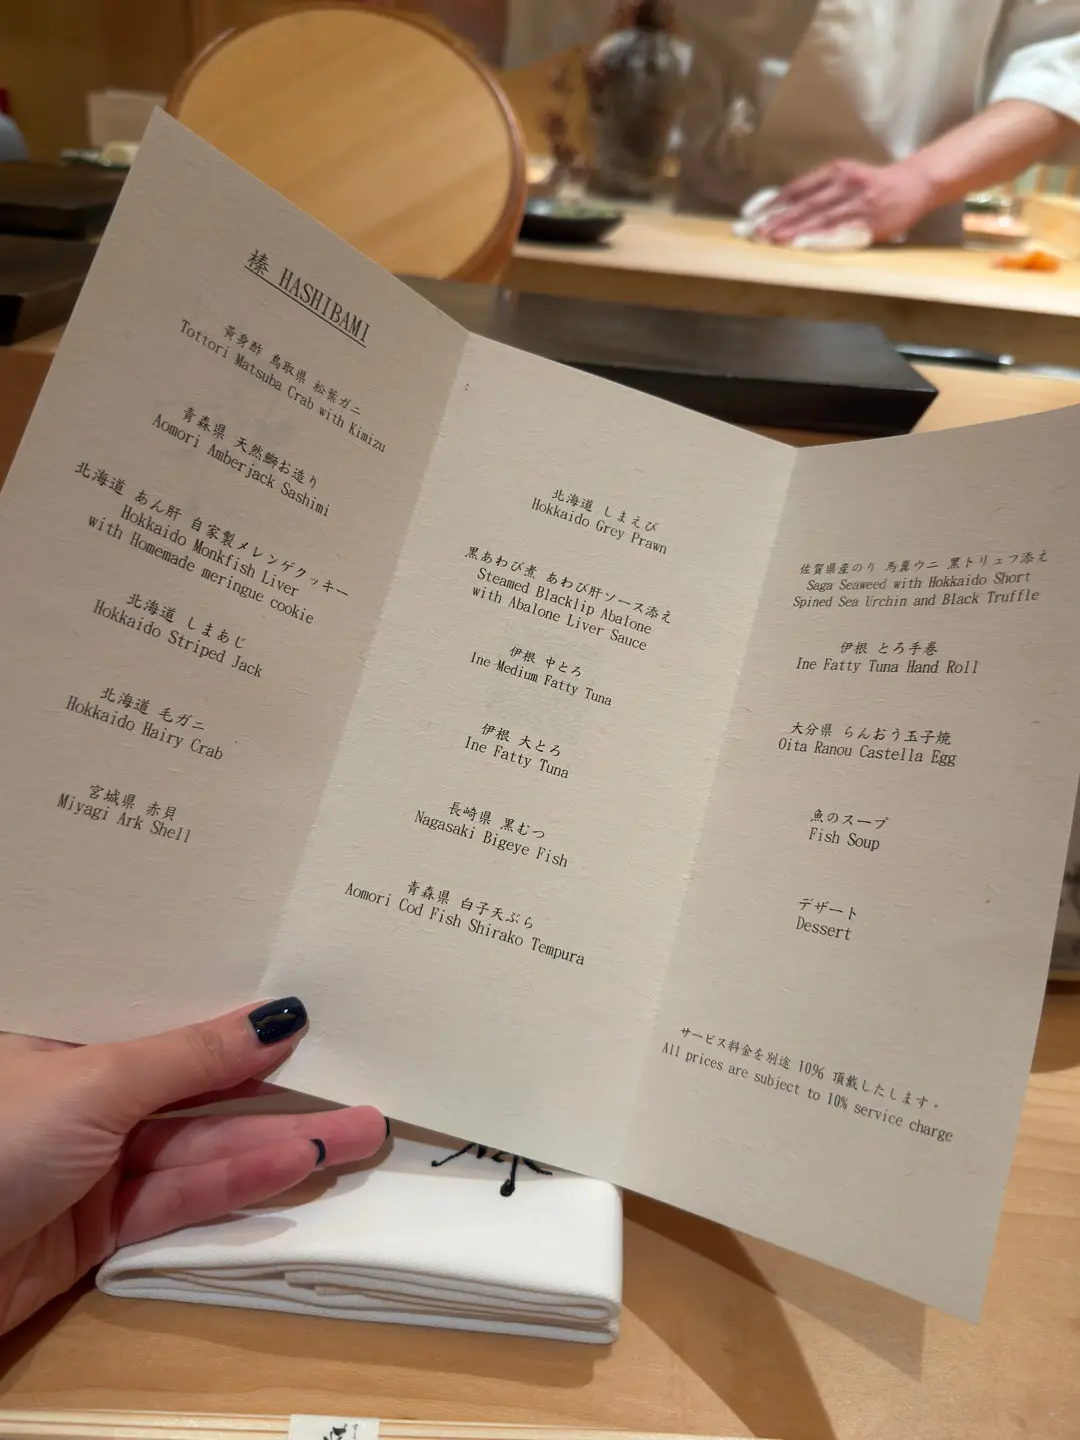 榛 HASHIBAMI
黄身酢 鳥取県 松葉ガニ
Tottori Matsuba Crab with Kimizu
青森県 天然鰤お造り
Aomori Amberjack Sashimi
北海道 あん肝 自家製メレンゲクッキー
Hokkaido Monkfish Liver
with Homemade meringue cookie
北海道 しまあじ
Hokkaido Striped Jack
北海道 毛ガニ
Hokkaido Hairy Crab
宮城県 赤貝
Miyagi Ark Shell
北海道 しまえび
Hokkaido Grey Prawn
黒あわび煮 あわび肝ソース添え
Steamed Blacklip Abalone
with Abalone Liver Sauce
伊根 中とろ
Ine Medium Fatty Tuna
伊根 大とろ
Ine Fatty Tuna
長崎県 黒むつ
Nagasaki Bigeye Fish
青森県 白子天ぷら
Aomori Cod Fish Shirako Tempura
佐賀県産のり 馬糞ウニ 黒トリュフ添え
Saga Seaweed with Hokkaido Short
Spined Sea Urchin and Black Truffle
伊根 とろ手巻
Ine Fatty Tuna Hand Roll
大分県 らんおう玉子焼
Oita Ranou Castella Egg
魚のスープ
Fish Soup
デザート
Dessert
サービス料金を別途 10% 頂戴したします。
All prices are subject to 10% service charge